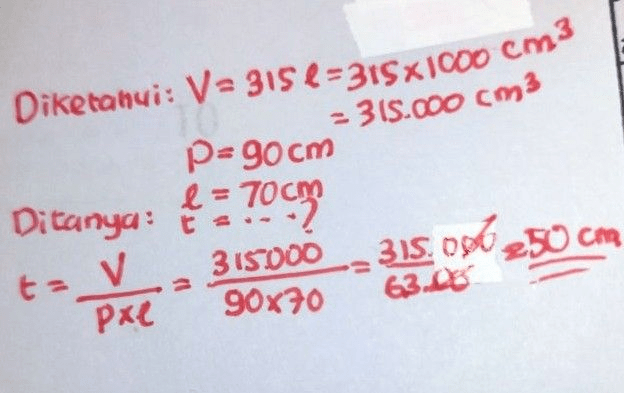 Diketahui: V = 315 l = 315 x 1000 cm³
= 315.000 cm³
P = 90 cm
l = 70 cm
Ditanya: t = ...?
t = V / pxl = 315.000 / 90x70 = 315.000 / 63.00 = 50 cm